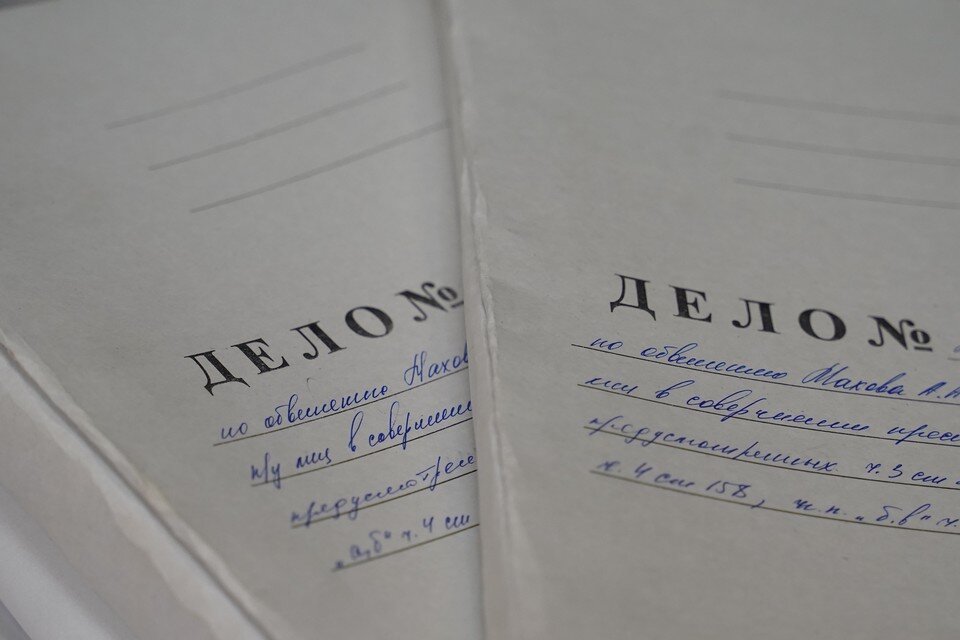 ДЕЛО №
по обвинению Махов
пру лиц в соверш
предусмотрен
„а,б" ч. 4 ст
ДЕЛО №
по обвинению Махова А.Н
лиц в совершении прес
предусмотренных ч. 3 ст
ч. 4 ст 158, п.п. „б.в" ч.